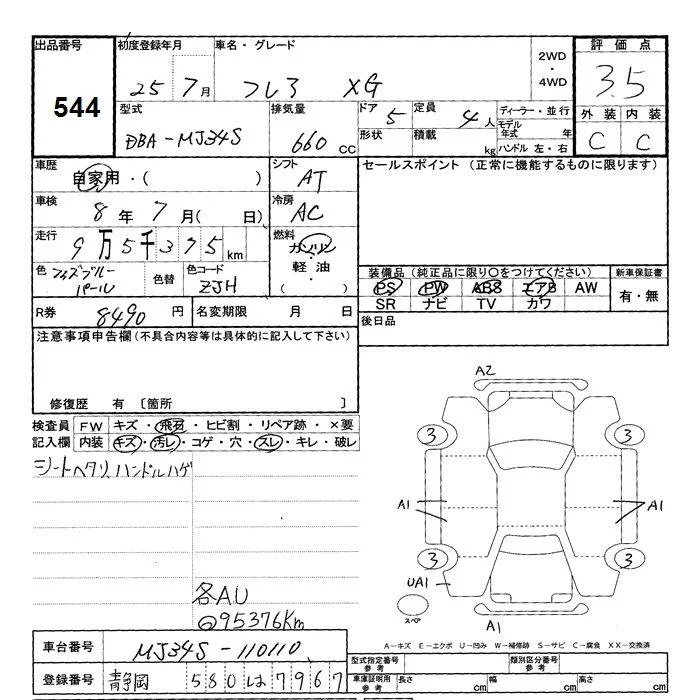 出品番号
544
初度登録年月
25 7月
車名・グレード
フレア XG
2WD
・
4WD
評価点
3.5
型式
DBA-MJ34S
排気量
660 cc
ドア 5
形状
定員 4人
積載 kg
ディーラー・並行
モデル年式 年
ハンドル 左・右
外装 内装
C C
車歴
自家用・( )
シフト
AT
セールスポイント (正常に機能するものに限ります)
車検
8年7月( 日)
冷房
AC
走行
9万5千375km
燃料
ガソリン
軽油
( )
色
パール
色替
色コード
ZJH
装備品 (純正品に限り○をつけてください)
PS PW ABS エアB AW
SR ナビ TV カワ
新車保証書
有・無
R券
8490円
名変期限 月 日
後日品
注意事項申告欄 (不具合内容等は具体的に記入して下さい)
修復歴 有 [箇所 ]
検査員記入欄
FW キズ・飛石・ヒビ割・リペア跡・×要
内装 キズ・汚レ・コゲ・穴・スレ・キレ・破レ
シートヘタリ ハンドルハゲ
各AU
@95376Km
A2
3
3
A1
A1
3
3
UA1
スペア
A1
A-キズ E-エクボ U-凹み W-補修跡 S-サビ C-腐食 XX-交換済
車台番号
MJ34S-110110
登録番号
静岡 580 は 7967
型式指定番号
参考
類別区分番号
参考
車庫証明用
参考
長さ cm
幅 cm
高さ cm